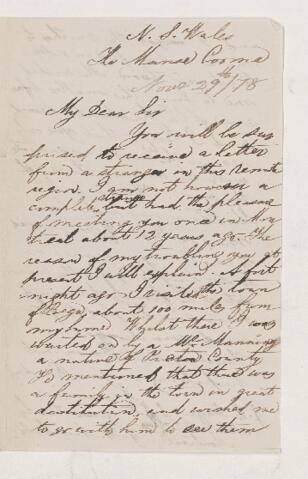 N. S. Wales
The Manse Cooma
Novr 29th/78
My Dear Sir
You will be sur
prised to receive a letter
from a stranger in this remote
region. I am not however a
complete stranger but had the pleasure
of meeting you once in Mon
treal about 12 years ago. The
reason of my troubling you at
present I will explain. A fort
night ago I visited the town
of Bega, about 100 miles from
my home. Whilst there I was
waited on by a Mr Manning
a native of County
He mentioned that there was
a family in the town in great
destitution, and wished me
to go with him to see them